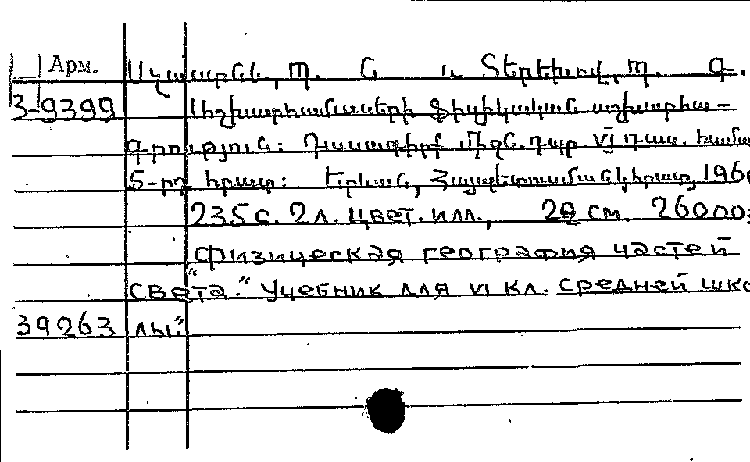 Арм.
Պ. Ն և Տերեխով, Պ. Գ.
3-9399 Աշխարհամասերի ֆիզիկական աշխարհա-
գրություն: Դասագիրք միջն. դպր VI դաս. համար
5-րդ հրատ: Երևան, Հայպետուսմանկհրատ, 196
235с. 2л. цвет. илл., 22 см. 26000
"физическая география частей
света." Учебник для VI кл. средней шко
39263 лы."